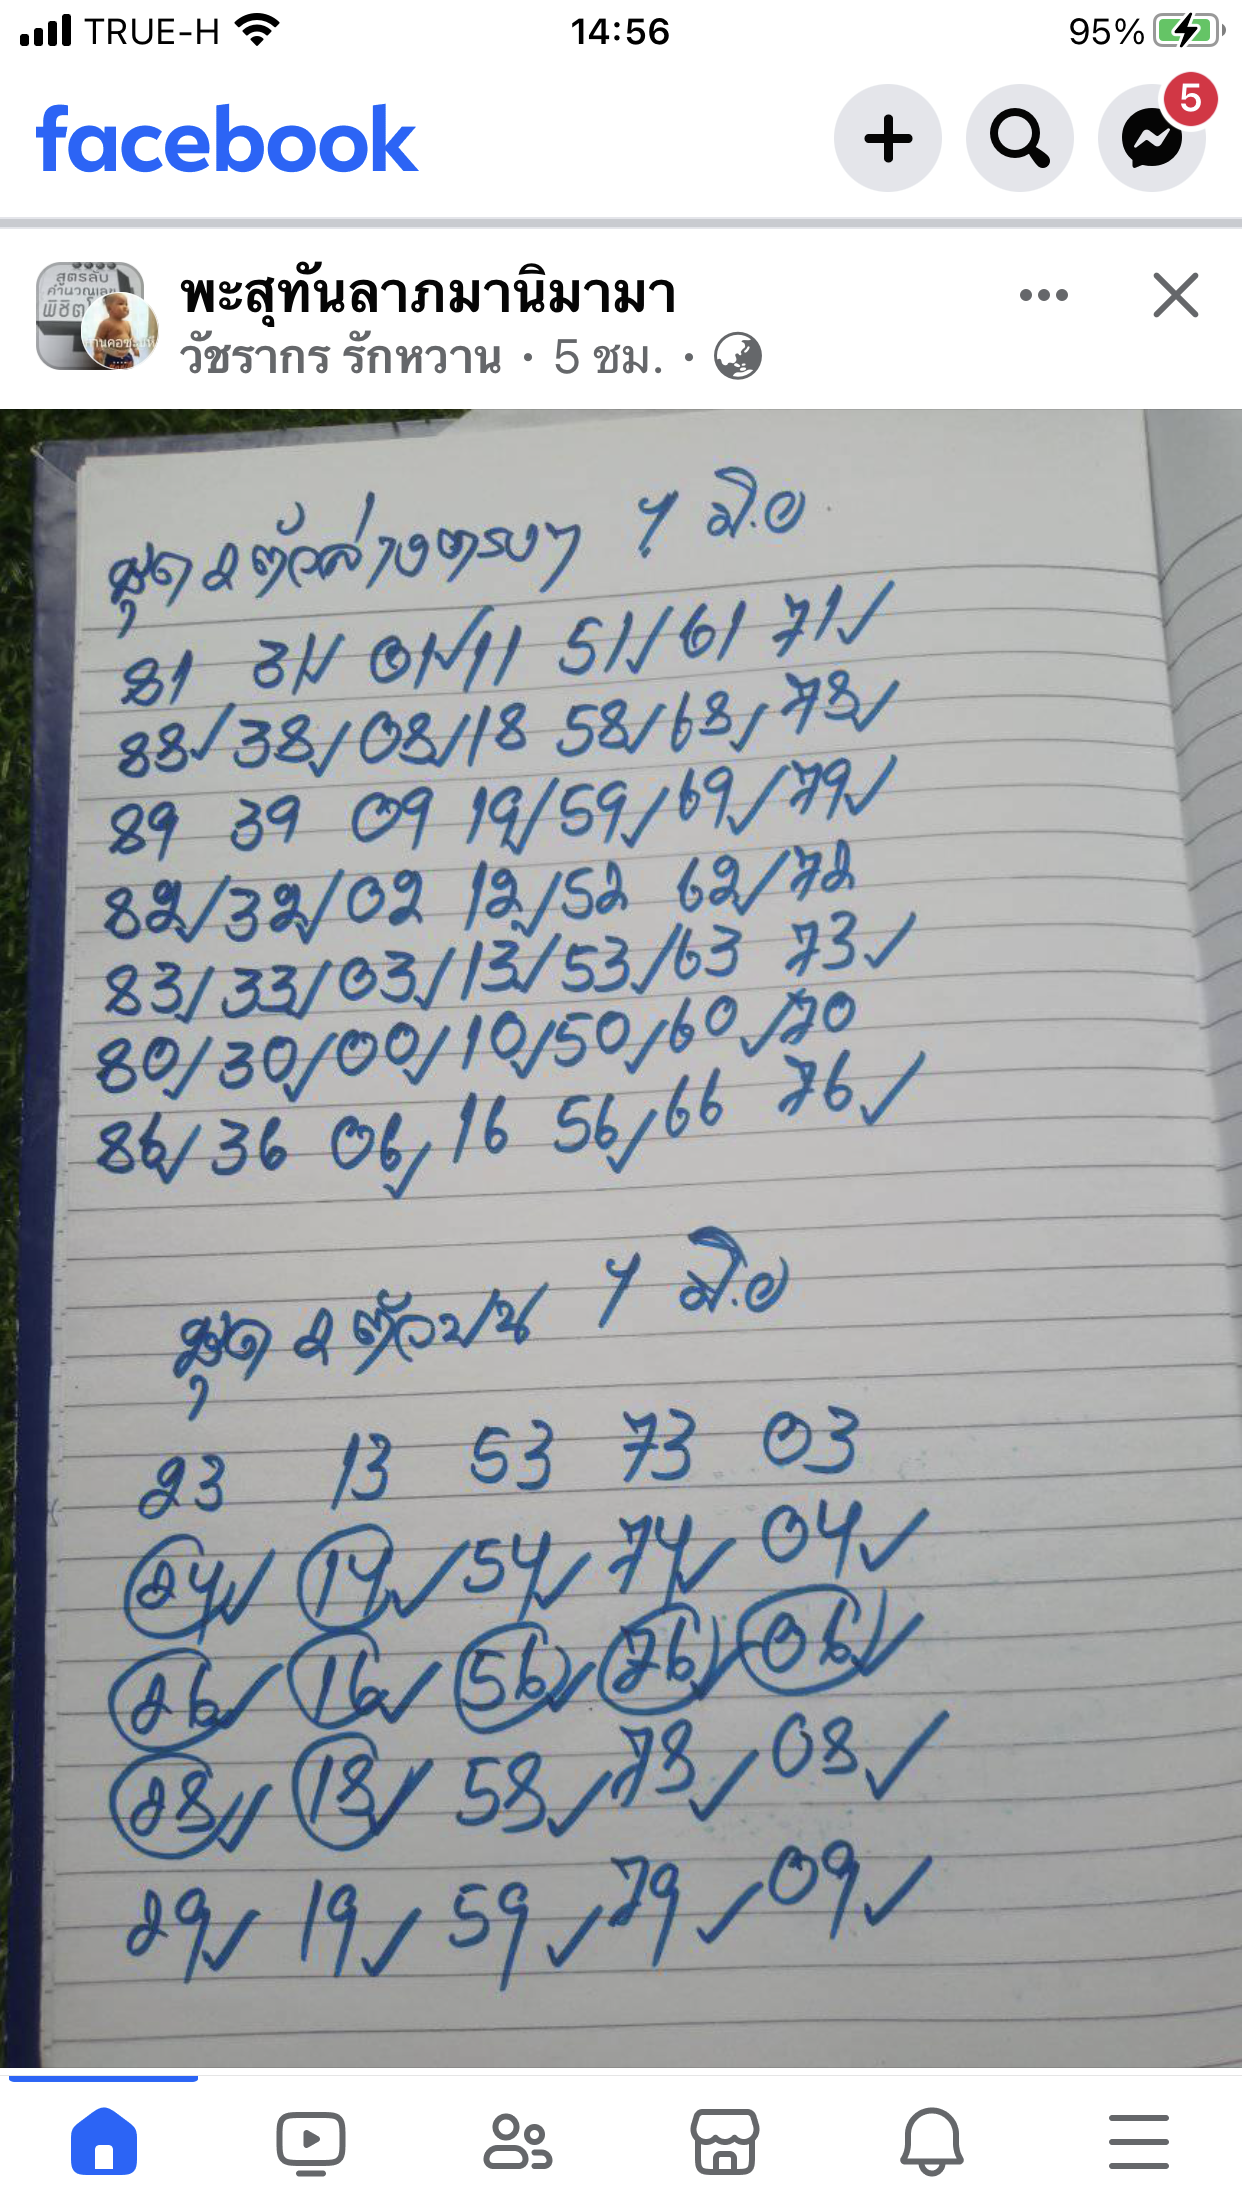 TRUE-H 14:56 95%
facebook
5
สูตรลับ
คำนวณเลข
พิชิต
พะสุทันลาภมานิมามา
วัชรากร รักหวาน · 5 ชม. ·
ชุด 2 ตัวล่างตรงๆ 1 มิ.ย
81 31/ 01/ 11 51/ 61 71/
88/ 38/ 08/ 18 58/ 68/ 78/
89 39 09 19/ 59/ 69/ 79/
82/ 32/ 02 12/ 52 62/ 72
83/ 33/ 03/ 13/ 53/ 63 73/
80/ 30/ 00/ 10/ 50/ 60/ 70
86/ 36 06/ 16 56/ 66 76/
ชุด 2 ตัวบน 1 มิ.ย
23 13 53 73 03
24✓ 14✓ 54✓ 74✓ 04✓
26✓ 16✓ 56✓ 76✓ 06✓
28✓ 18✓ 58✓ 78✓ 08✓
29✓ 19✓ 59✓ 79✓ 09✓